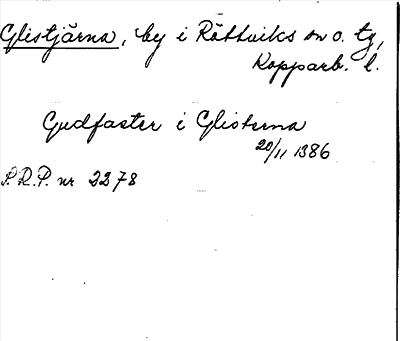 Glistjärna, by i Rättviks sn o. tg,
Kopparb. l.
Gudfaster i Glisterna
20/11 1386
S.R.P. nr 2278